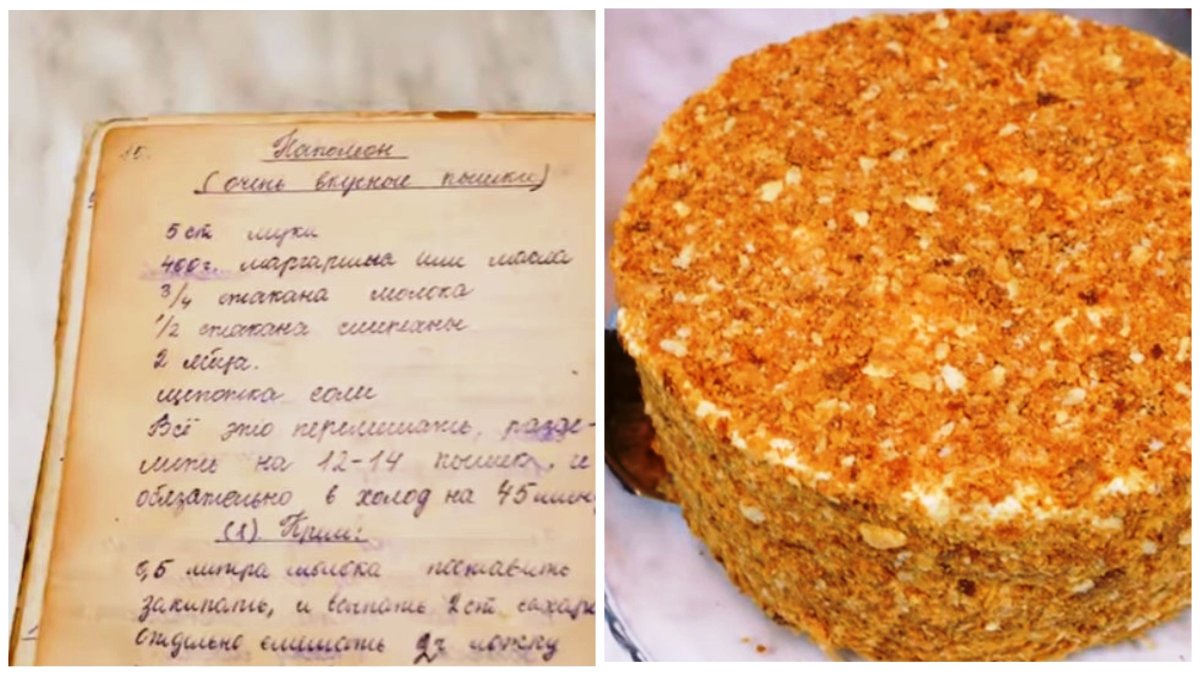 15.
Наполеон
(очень вкусные пышки)
5 ст муки
400 г. маргарина или масла
3/4 стакана молока
1/2 стакана сметаны
2 яйца.
щепотка соли
Всё это перемешать, разде-
лить на 12-14 пышек, и
обязательно в холод на 45 мин
(1). Крем:
0,5 литра молока поставить
закипать, и всыпать 2 ст сахар
отдельно смешать 2 ч ложку